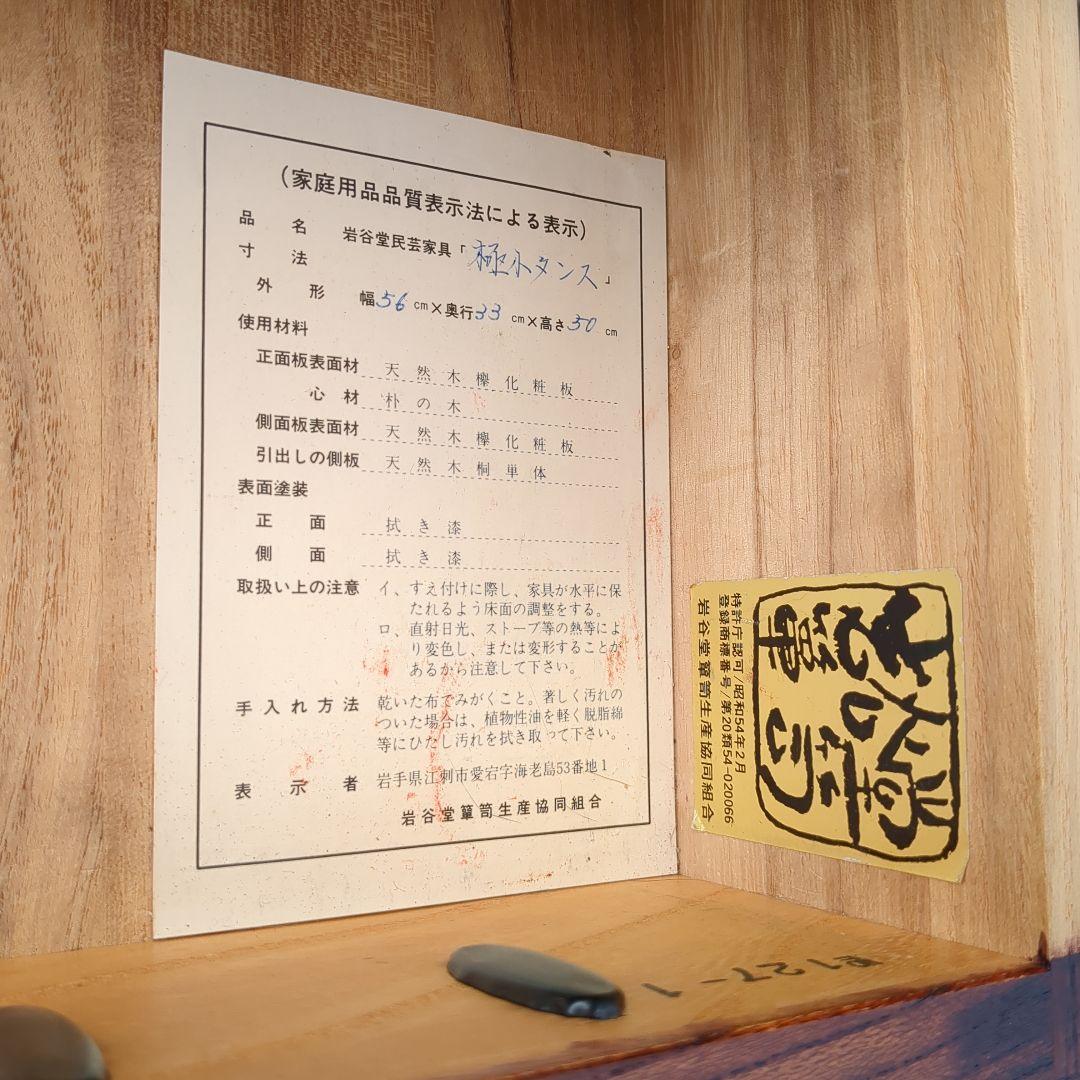 （家庭用品品質表示法による表示）
品名 岩谷堂民芸家具「極小タンス」
寸法
外形 幅56cm×奥行33cm×高さ50cm
使用材料
正面板表面材 天然木欅化粧板
心材 朴の木
側面板表面材 天然木欅化粧板
引出しの側板 天然木桐単体
表面塗装
正面 拭き漆
側面 拭き漆
取扱い上の注意 イ、すえ付けに際し、家具が水平に保
たれるよう床面の調整をする。
ロ、直射日光、ストーブ等の熱等によ
り変色し、または変形することが
あるから注意して下さい。
手入れ方法 乾いた布でみがくこと。著しく汚れの
ついた場合は、植物性油を軽く脱脂綿
等にひたし汚れを拭き取って下さい。
表示者 岩手県江刺市愛宕字海老島53番地1
岩谷堂簞笥生産協同組合
特許庁認可/昭和54年2月
登録商標番号/第20類54-020066
岩谷堂簞笥生産協同組合
127-1